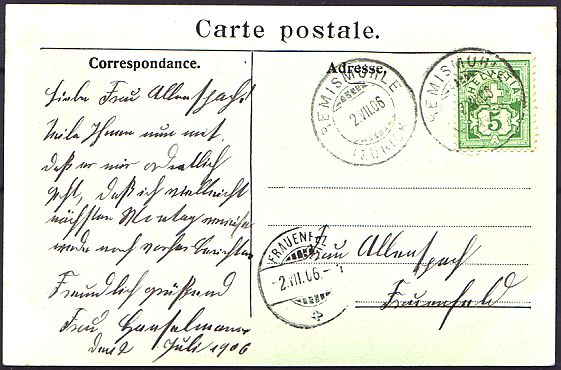 Carte postale.
Correspondance.
Adresse.
Liebe Frau Allenspach.
Teile Ihnen nun mit,
daß es mir ordentlich
geht, daß ich vielleicht
nächsten Montag verreise
werde noch vorher berichten
Freundlich grüßend
Frau Hanselmann
den 2 Juli 1906
REMISMÜHLE
2.VII.06
REMISMÜHLE
HELVETIA
5
FRAUENFELD
2.VII.06.
Frau Allenspach
Frauenfeld